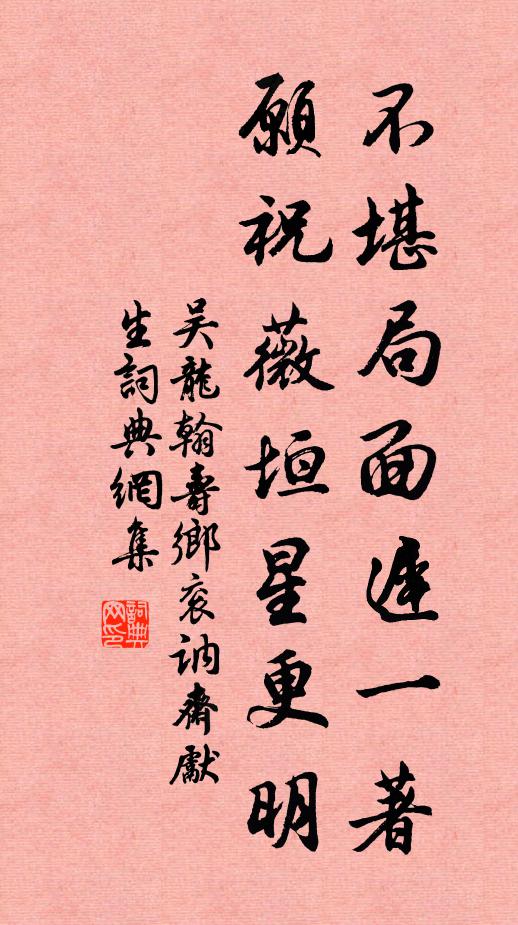 不堪局面遲一著
願祝薇垣星更明
吴龍翰壽鄉衮訥齋獻
生詞典網集
詞典網印